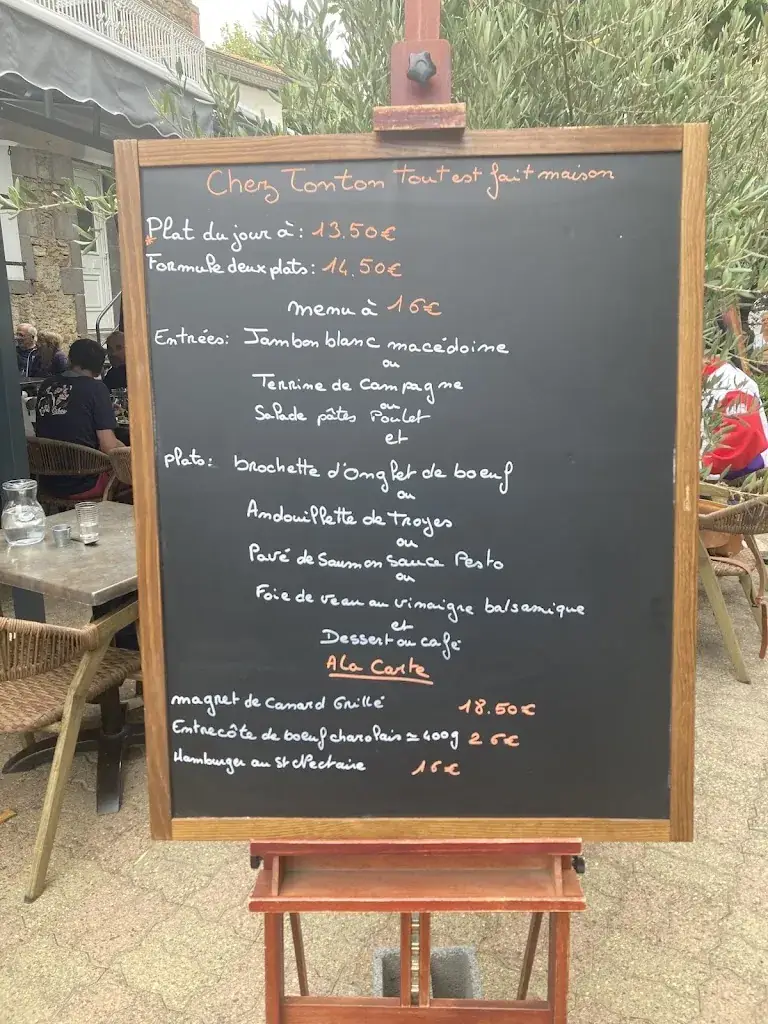 Chez Tonton tout est fait maison
Plat du jour à : 13.50€
Formule deux plats : 14.50€
menu à 16€
Entrées : Jambon blanc macédoine
ou
Terrine de Campagne
ou
Salade pâtes Poulet
et
plats : brochette d'onglet de boeuf
ou
Andouillette de Troyes
ou
Pavé de Saumon Sauce Pesto
ou
Foie de veau au vinaigre balsamique
et
Dessert ou café
A La Carte
magret de Canard Grillé 18.50€
Entrecôte de boeuf charolais ≃ 400g 26€
Hamburger au St Nectaire 16€